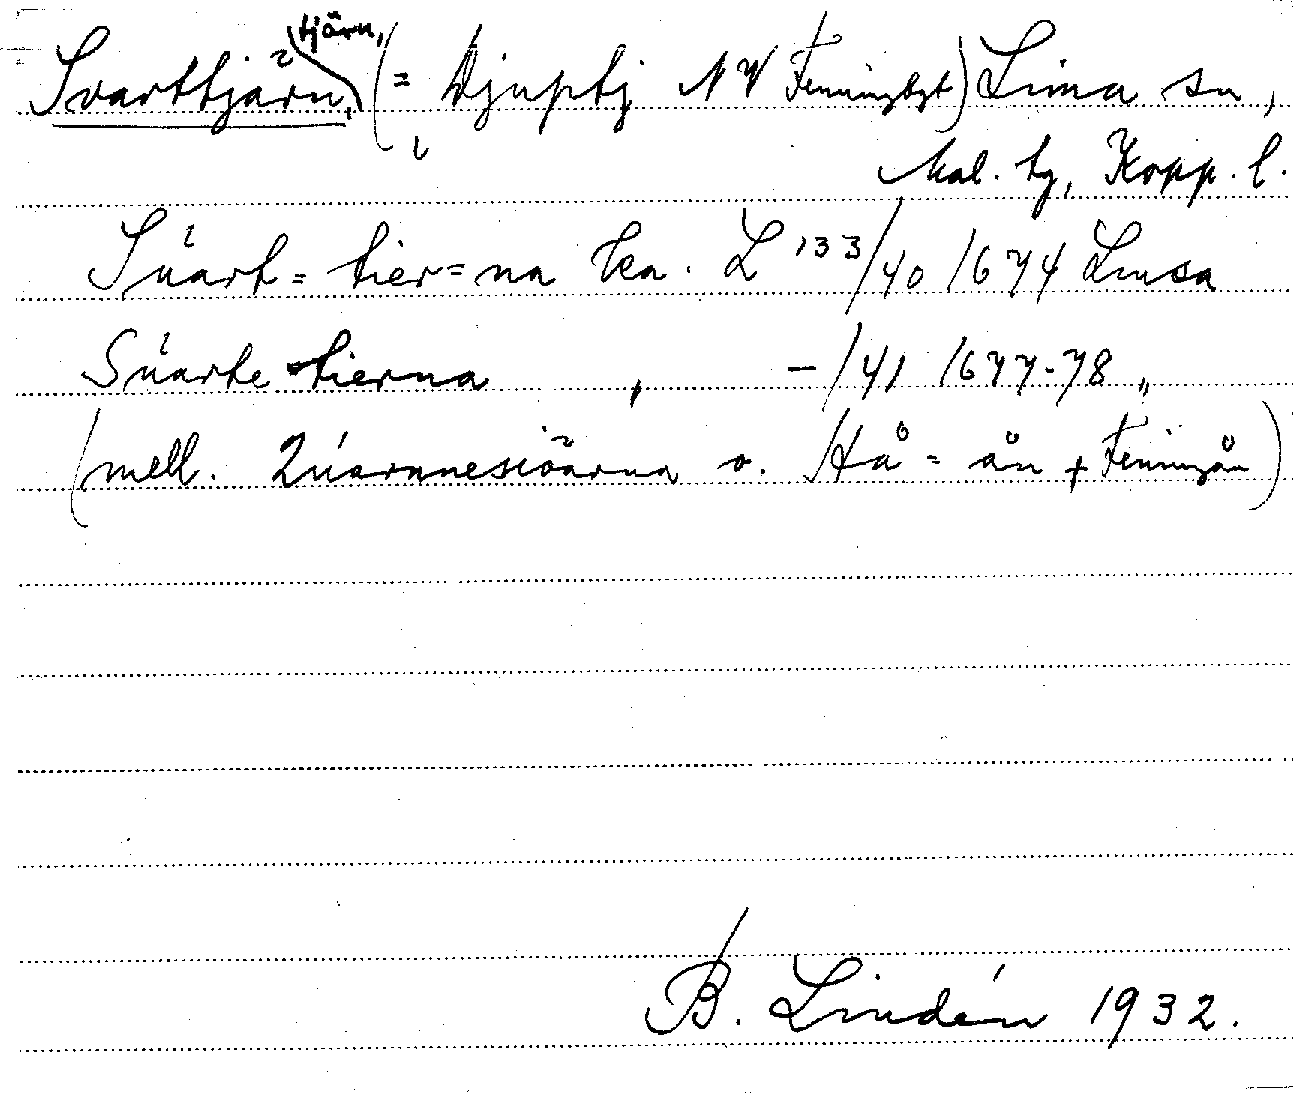 tjärn,
Svarttjärn, (= Djuptj NV Fenningbgt) Lima sn,
Mal. tg, Kopp. l.
Suart=tier=na ka. L 133/40 1674 Limsa
Suarte tierna " –/41 1677-78 "
(mell. Quarnnesiöarna o. Hå=ån + Fenningån)
B. Lindén 1932.